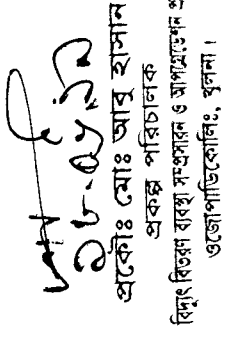 ১৮.০৬.১৯
প্রকৌঃ মোঃ আবু হাসান
প্রকল্প পরিচালক
বিদ্যুৎ বিতরণ ব্যবস্থা সম্প্রসারন ও আপগ্রেডেশন
ওজোপাডিকোলিঃ, খুলনা।